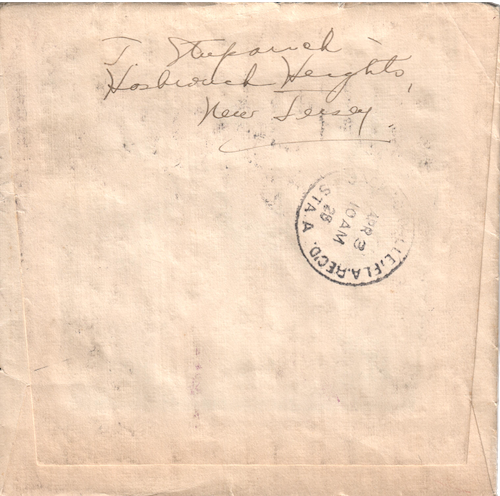 J Stepanich
Hasbrouck Heights,
New Jersey.
LLE, FLA. REC'D.
APR 3
10 AM
28
STA. A